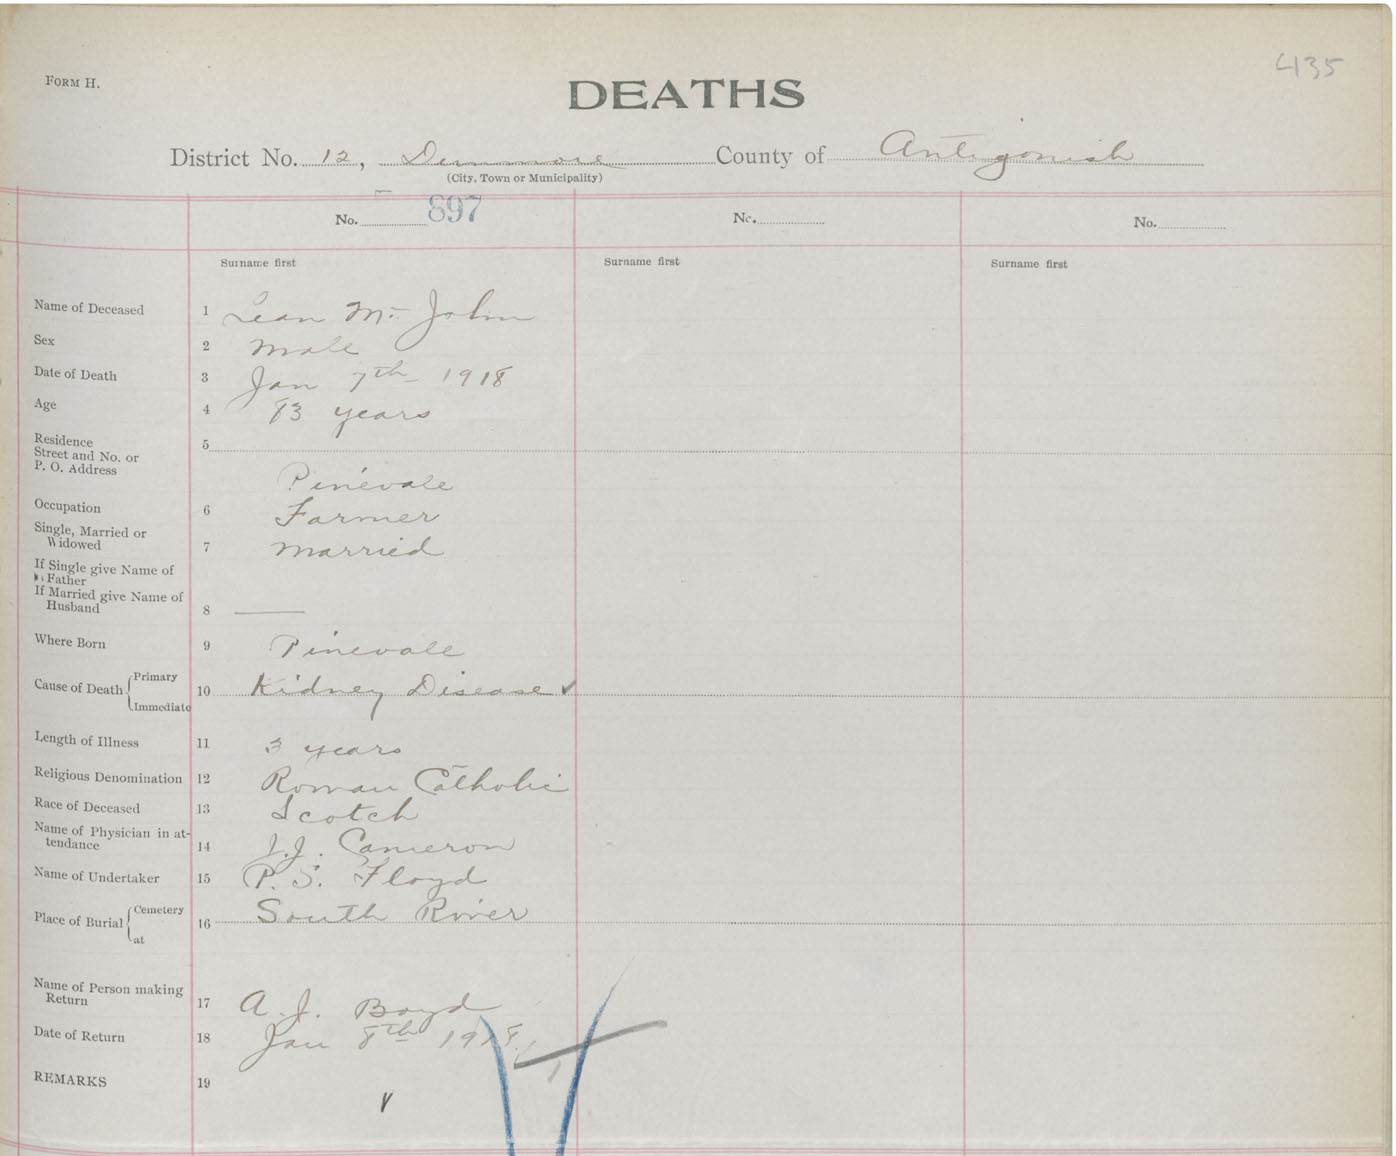 435
FORM H.
DEATHS
District No. 12, Dunmore County of Antigonish
(City, Town or Municipality)
No. 897 No. No.
Surname first Surname first Surname first
Name of Deceased 1 Lean Mc John
Sex 2 Male
Date of Death 3 Jan 7th 1918
Age 4 83 years
Residence
Street and No. or
P. O. Address 5
Pinevale
Occupation 6 Farmer
Single, Married or
Widowed 7 Married
If Single give Name of
Father
If Married give Name of
Husband 8 ——
Where Born 9 Pinevale
Cause of Death { Primary
10 Kidney Disease ✓
Immediate
Length of Illness 11 3 years
Religious Denomination 12 Roman Catholic
Race of Deceased 13 Scotch
Name of Physician in at-
tendance 14 J.J. Cameron
Name of Undertaker 15 P. S. Floyd
Place of Burial { Cemetery
16 South River
at
Name of Person making
Return 17 A. J. Boyd
Date of Return 18 Jan 8th 1918
REMARKS 19